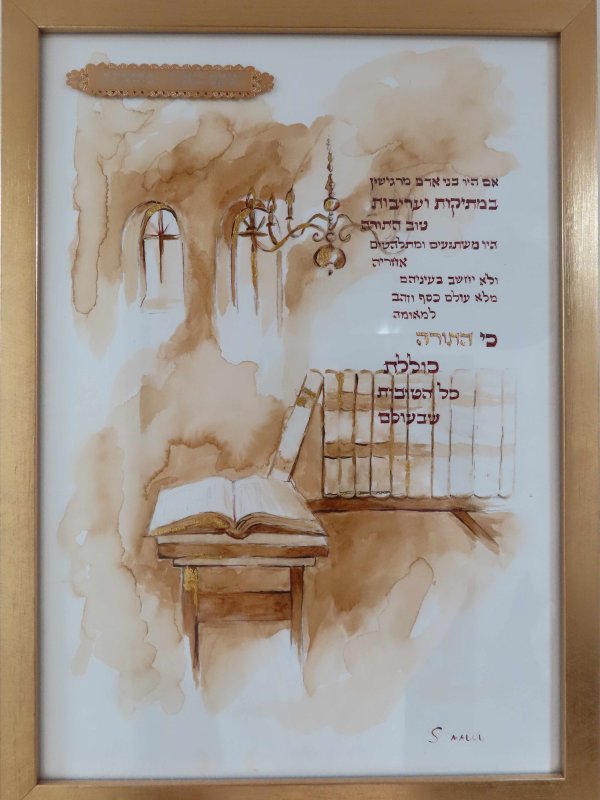 אם היו בני אדם מרגישין
במתיקות ועריבות
טוב התורה
היו משתגעים ומתלהטים
אחריה
ולא יחשב בעיניהם
מלא עולם כסף וזהב
למאומה
כי התורה
כוללת
כל הטובות
שבעולם